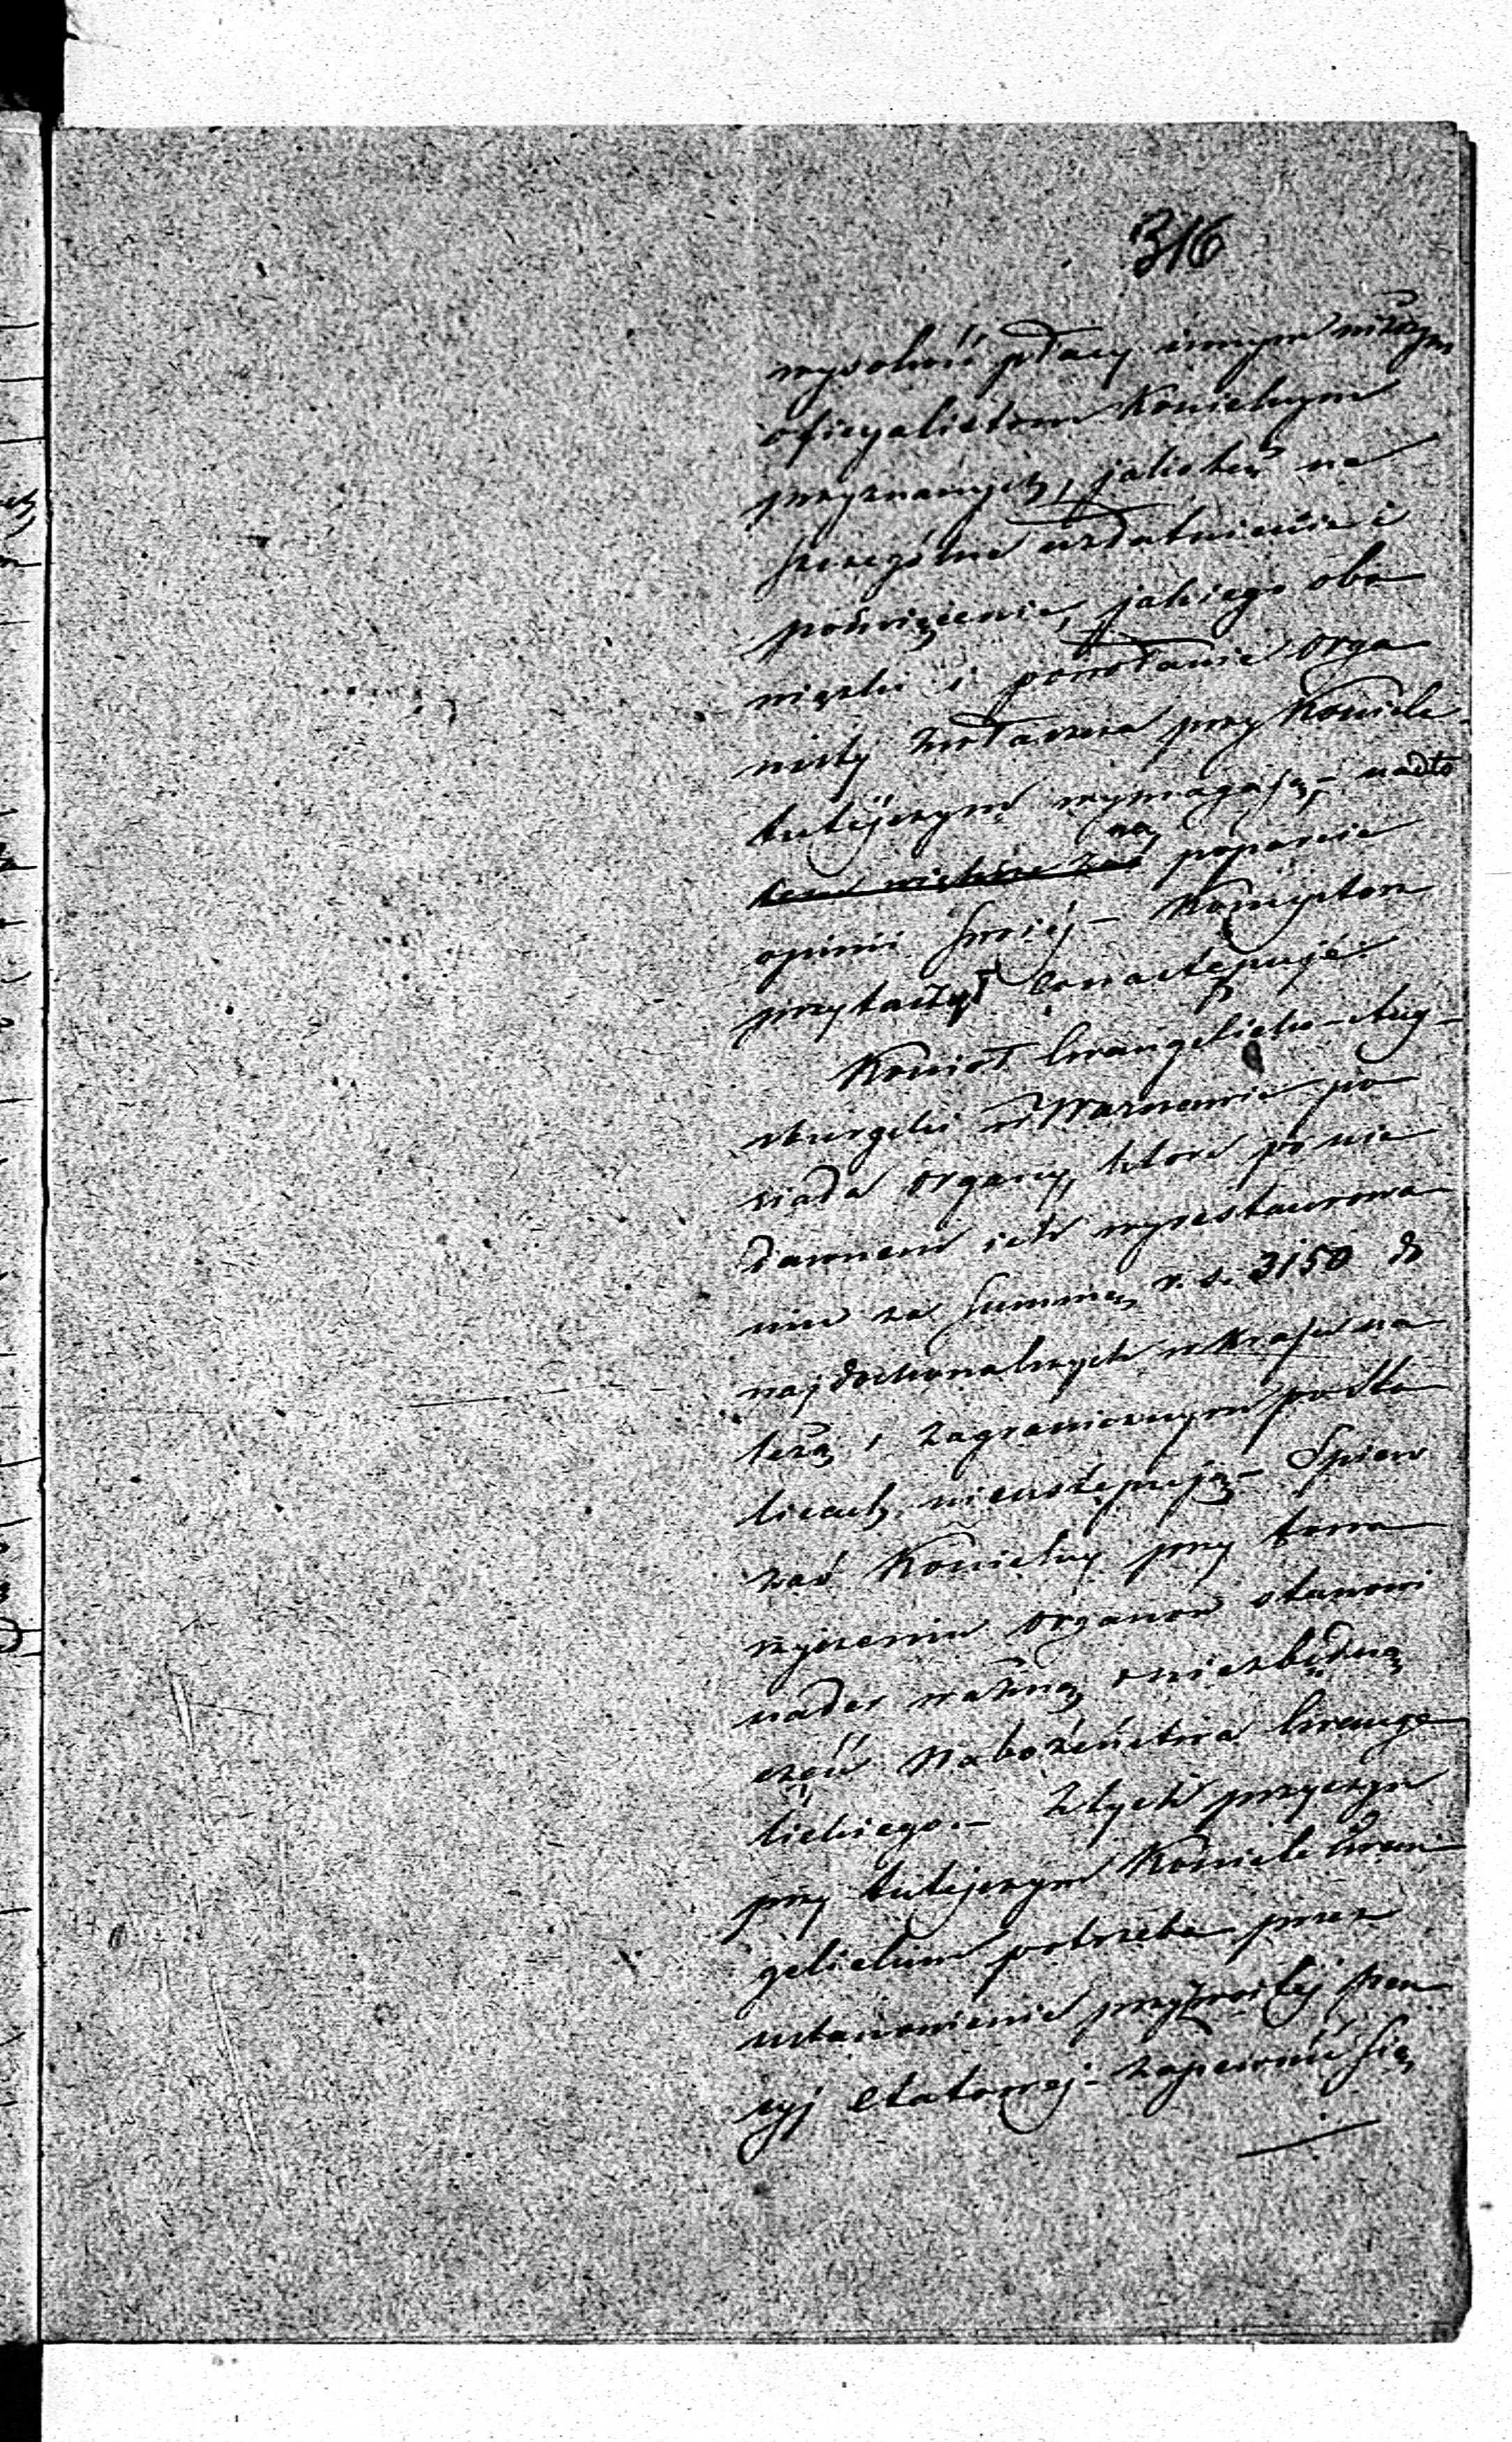 316
wysokość płacy innym niższym
oficyalistom Kościelnym
przyznanych, jakoteż na
szczególne uzdatnienie i
poświęcenie, jakiego obo
wiązki i powołanie orga
nisty zwłaszcza przy Kościele
tutéjszym wymagają,- nadto
tem większe zaś na poparcie
opinii swoiéj - Konsystorz
przytaczył co następuje.
Kościoł Ewangelicko-Aug-
sburgski w Warszawie po
siada organy, które po nie
dawnem ich wyrestaurowa
niu za summę r. s. 3150 do
najdoskonalszych w Kraju na
leżą, i zagranicznym pod ta
kicach nieustępują.- Spiew
zaś Kościelny przy towa
rzyszeniu organów stanowi
nader ważną i niezbędną
część Nabożeństwa Ewange
lickiego.- Z tych przyczyn
przy tutejszym Kościele Ewan
gelickim potrzeba przez
ustanowienie przyzwoitéj pen
syj etatowej- zapewnić się